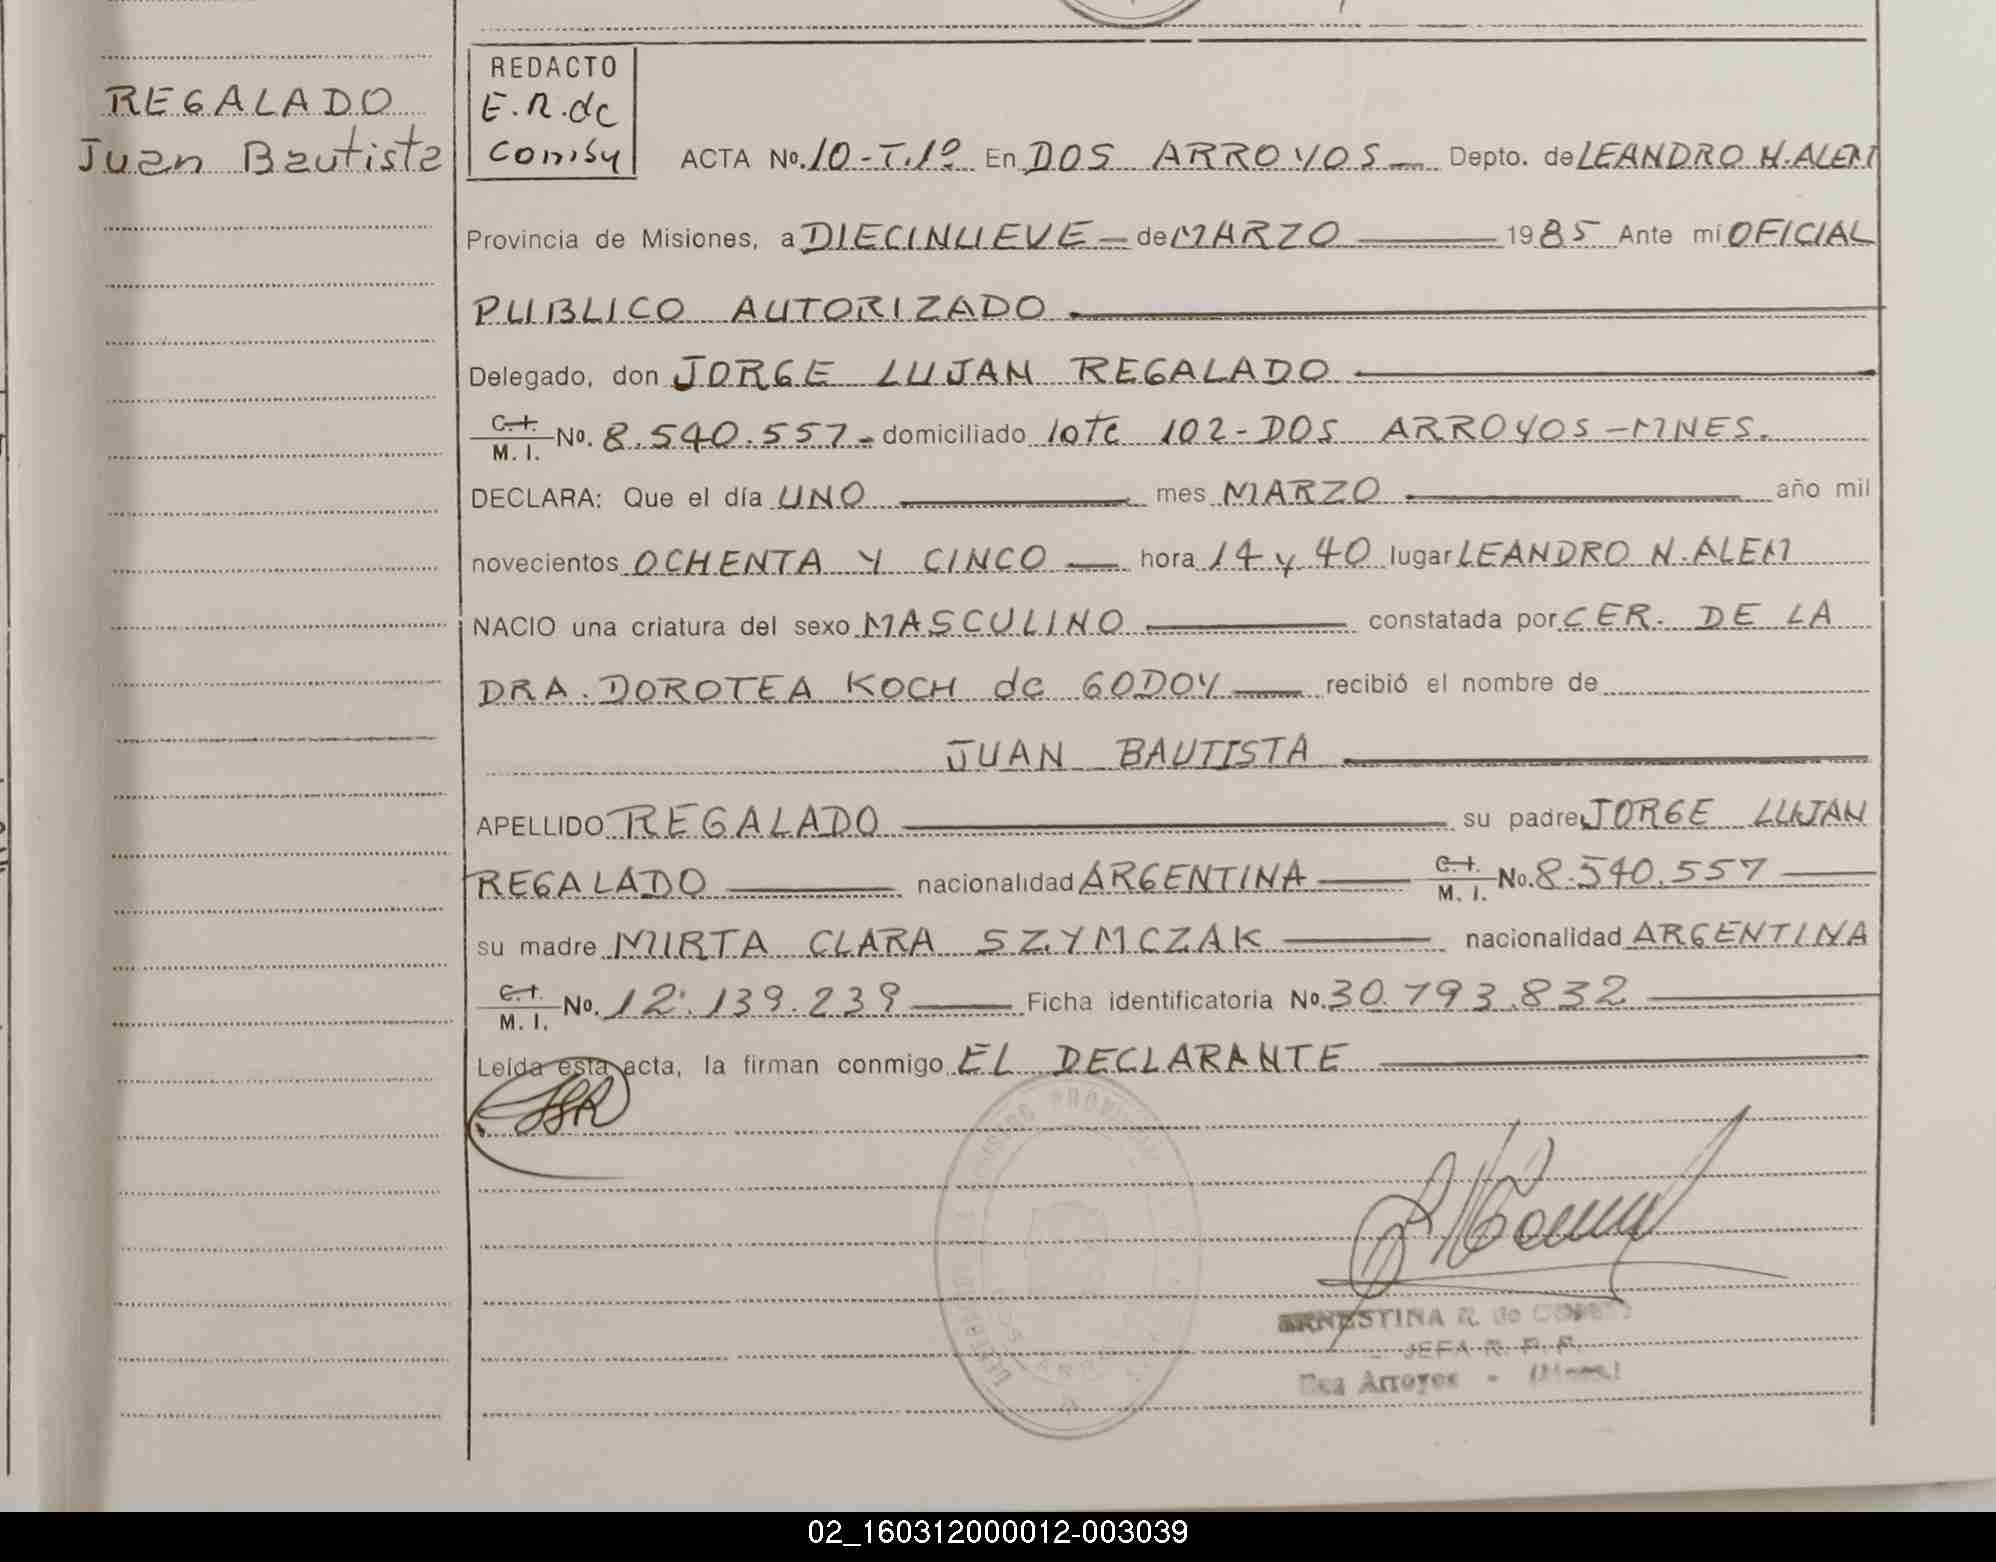 REGALADO
Juan Bautista
REDACTO
E.R. de
ACTA No. 10-T.1º En DOS ARROYOS Depto. de LEANDRO N. ALEM
Provincia de Misiones, a DIECINUEVE de MARZO 1985 Ante mí OFICIAL
PUBLICO AUTORIZADO
Delegado, don JORGE LUJAN REGALADO
C.I. M.I. No. 8.540.557 domiciliado lote 102-DOS ARROYOS-MNES.
DECLARA: Que el día UNO mes MARZO año mil
novecientos OCHENTA Y CINCO hora 14 y 40 lugar LEANDRO N. ALEM
NACIO una criatura del sexo MASCULINO constatada por CER. DE LA
DRA. DOROTEA KOCH de GODOY recibió el nombre de
JUAN BAUTISTA
APELLIDO REGALADO su padre JORGE LUJAN
REGALADO nacionalidad ARGENTINA C.I. M.I. No. 8.540.557
su madre MIRTA CLARA SZYMCZAK nacionalidad ARGENTINA
C.I. M.I. No. 12.139.239 Ficha identificatoria No. 30.793.832
Leída esta acta, la firman conmigo EL DECLARANTE
ERNESTINA R. de
JEFA R. P. P.
Dos Arroyos - (Mnes.)
02_160312000012-003039